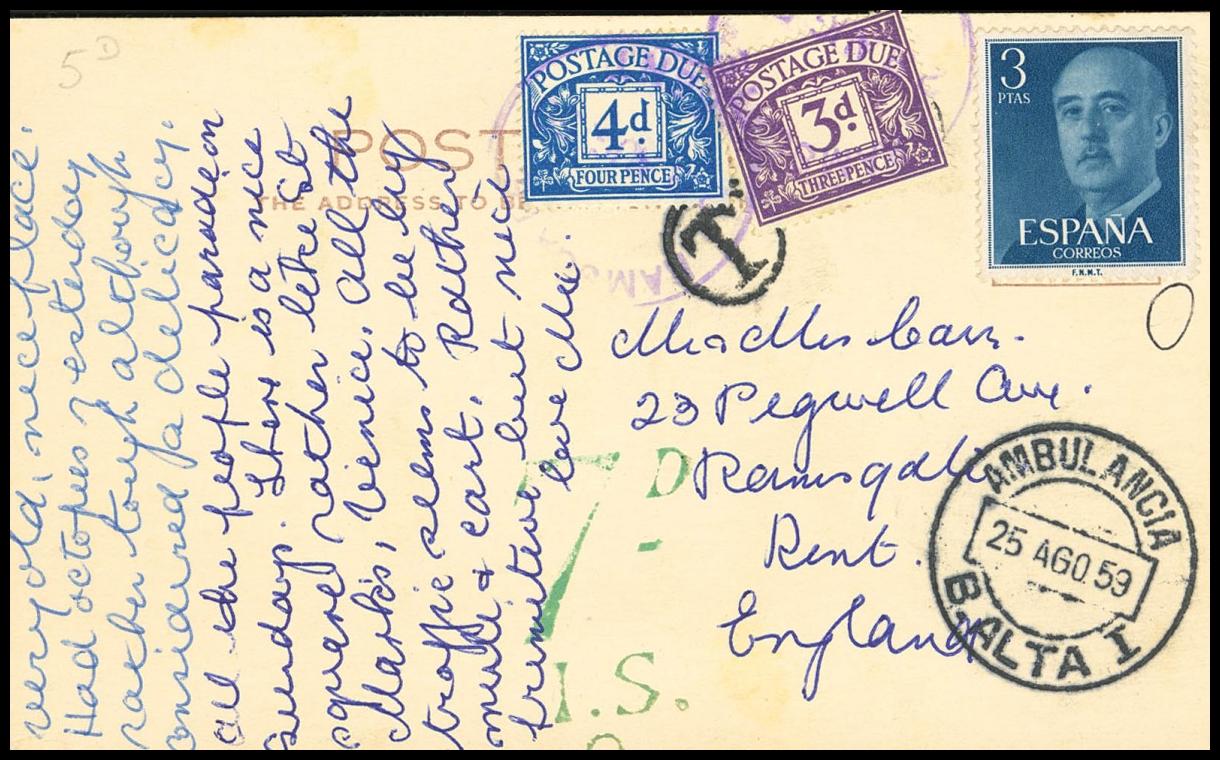 5D
POSTAGE DUE
4d
FOUR PENCE
POSTAGE DUE
3d.
THREE PENCE
3
PTAS
ESPAÑA
CORREOS
F.N.M.T.
POST
THE ADDRESS TO BE
T
very old, nice place.
Had octopus yesterday
rather tough although
considered a delicacy.
all the people parade on
Sunday. There is a nice
square rather like St
Mark's, Venice. all the
traffic seems to be by
mule & cart. Rather
primitive but nice
love
Mr & Mrs
23 Pegwell Ave.
Ramsgate
Kent.
England
AMBULANCIA
25 AGO. 59
B. ALTA I
7D
I.S.